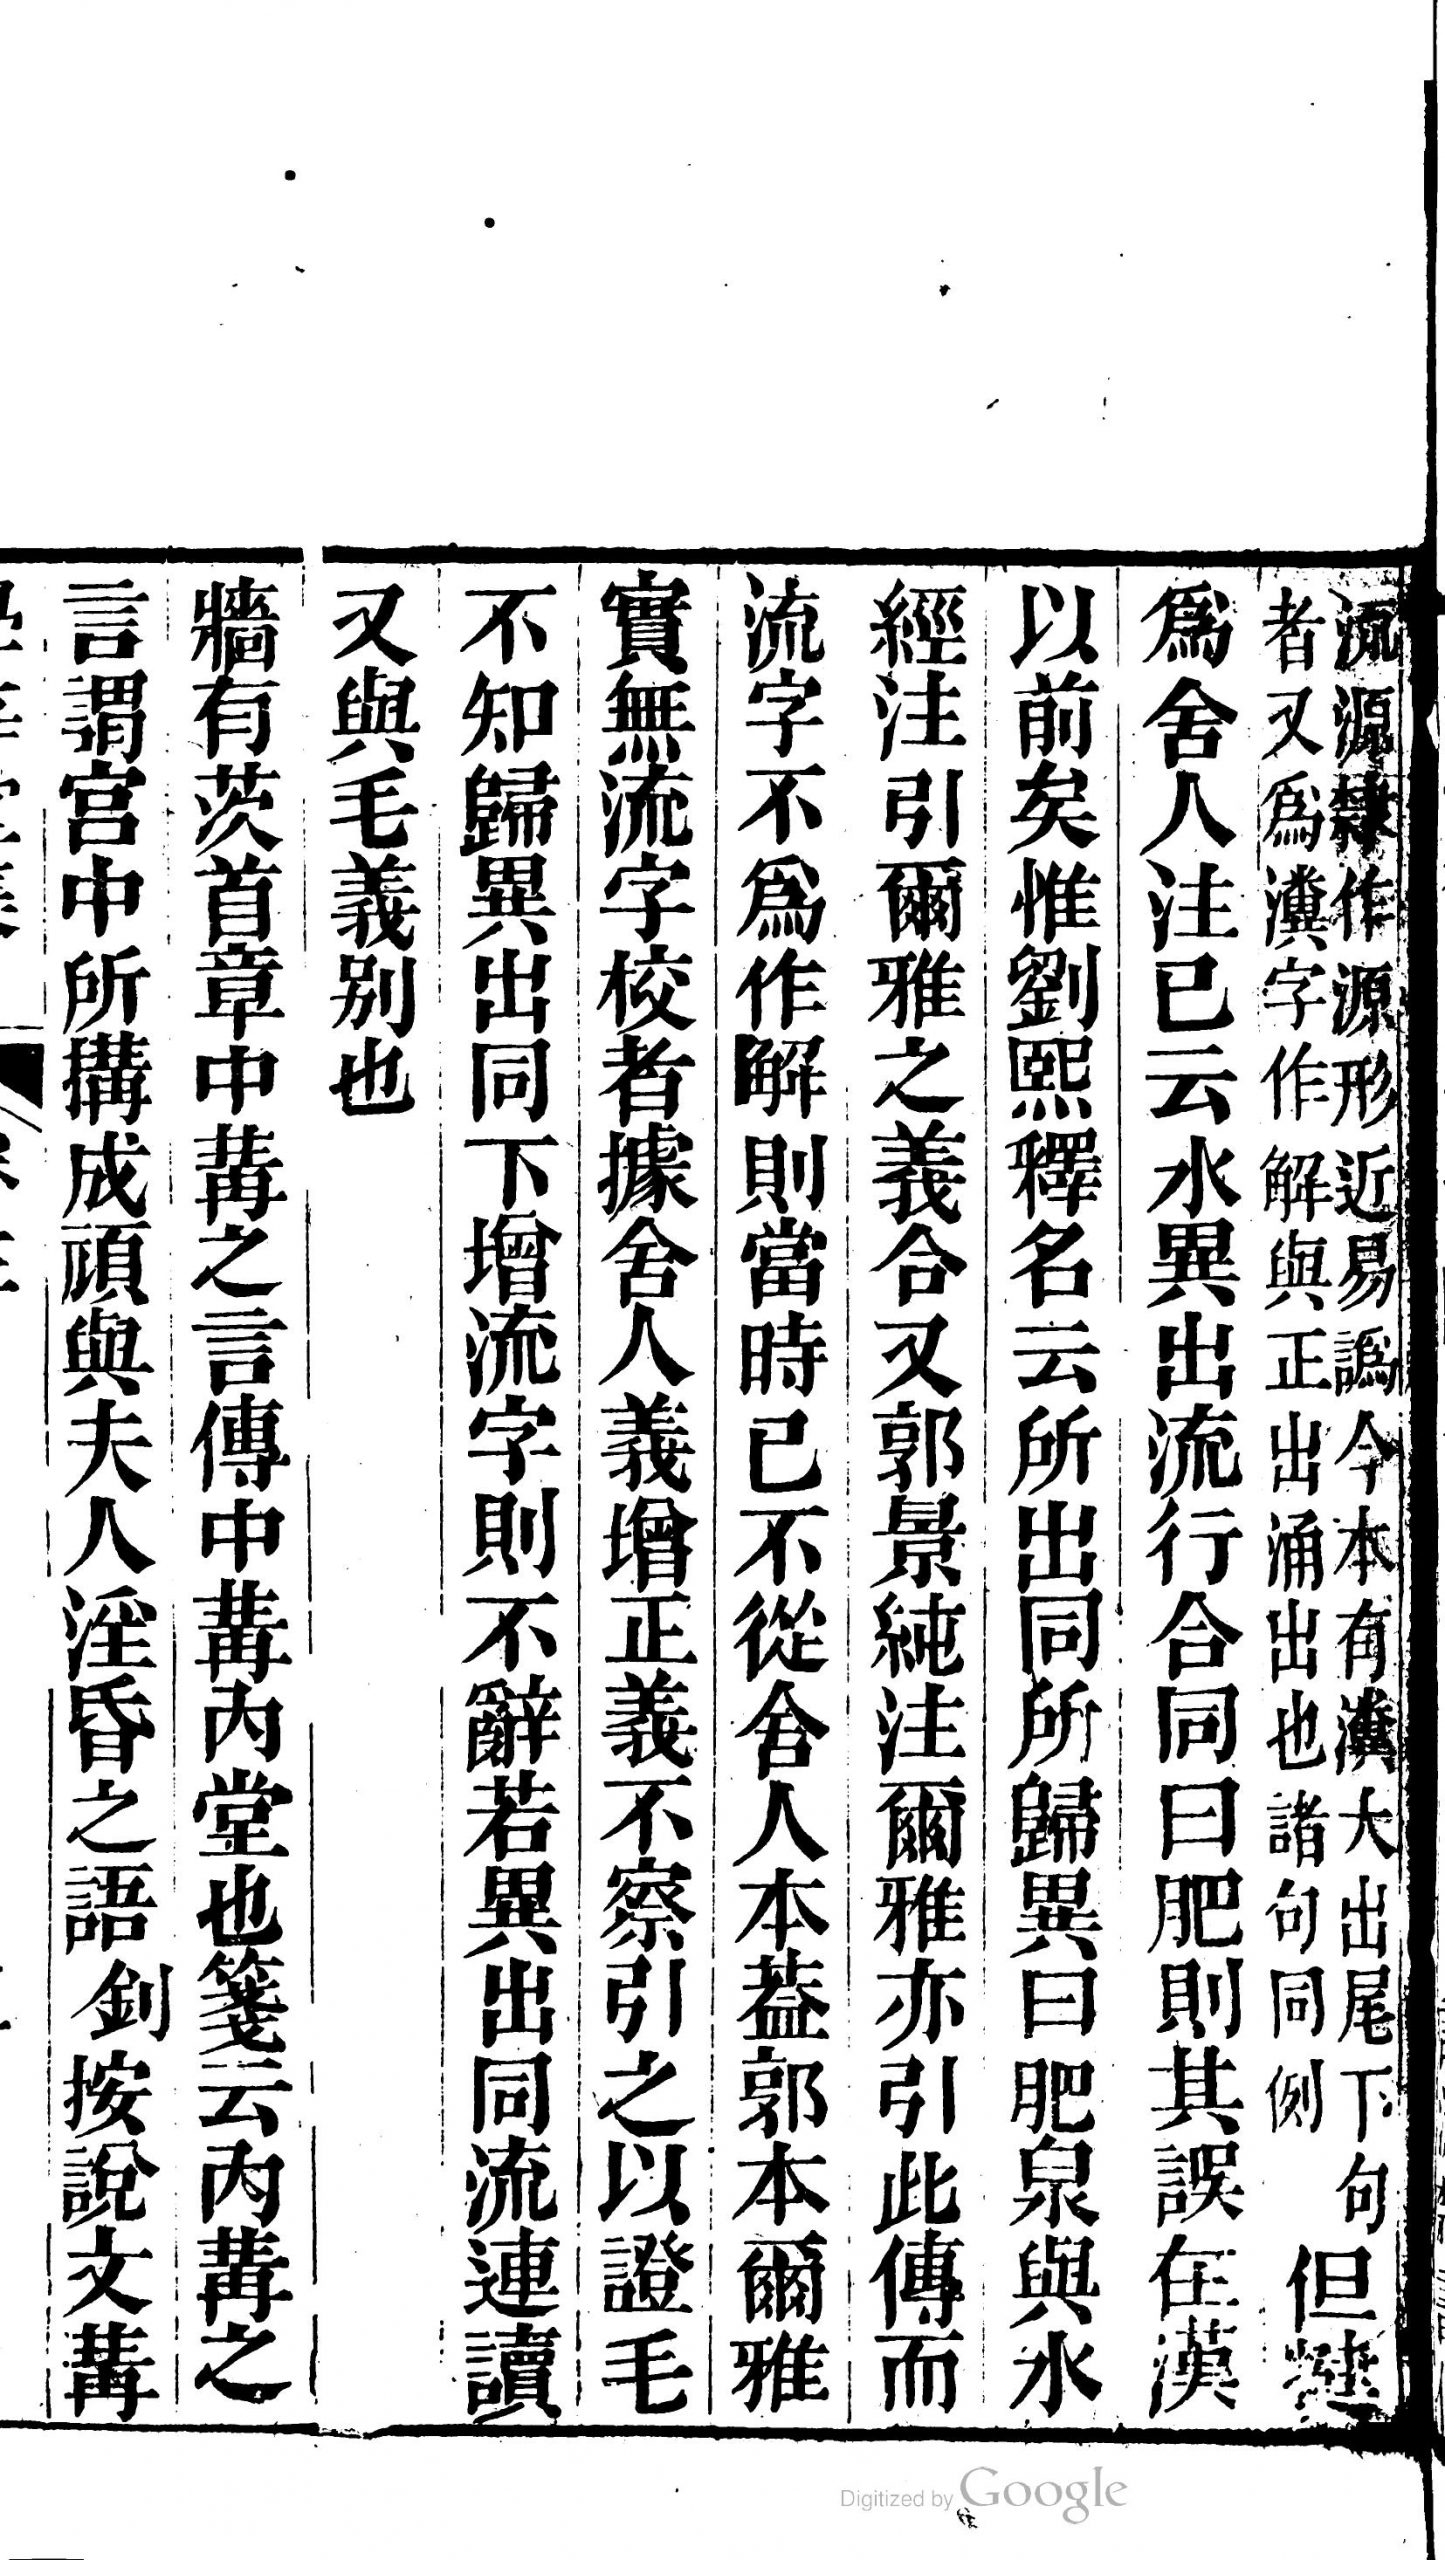 流源隸作源形近易譌今本有瀵大出尾下句
者又爲瀵字作解與正出涌出也諸句同例
但
爲舍人注已云水異出流行合同曰肥則其誤在漢
以前矣惟劉熙釋名云所出同所歸異曰肥泉與水
經注引爾雅之義合又郭景純注爾雅亦引此傳而
流字不爲作解則當時已不從舍人本葢郭本爾雅
實無流字校者據舍人義增正義不察引之以證毛
不知歸異出同下增流字則不辭若異出同流連讀
又與毛義別也
牆有茨首章中冓之言傳中冓內堂也箋云內冓之
言謂宮中所搆成頑與夫人淫昏之語釗按說文冓
Digitized by Google